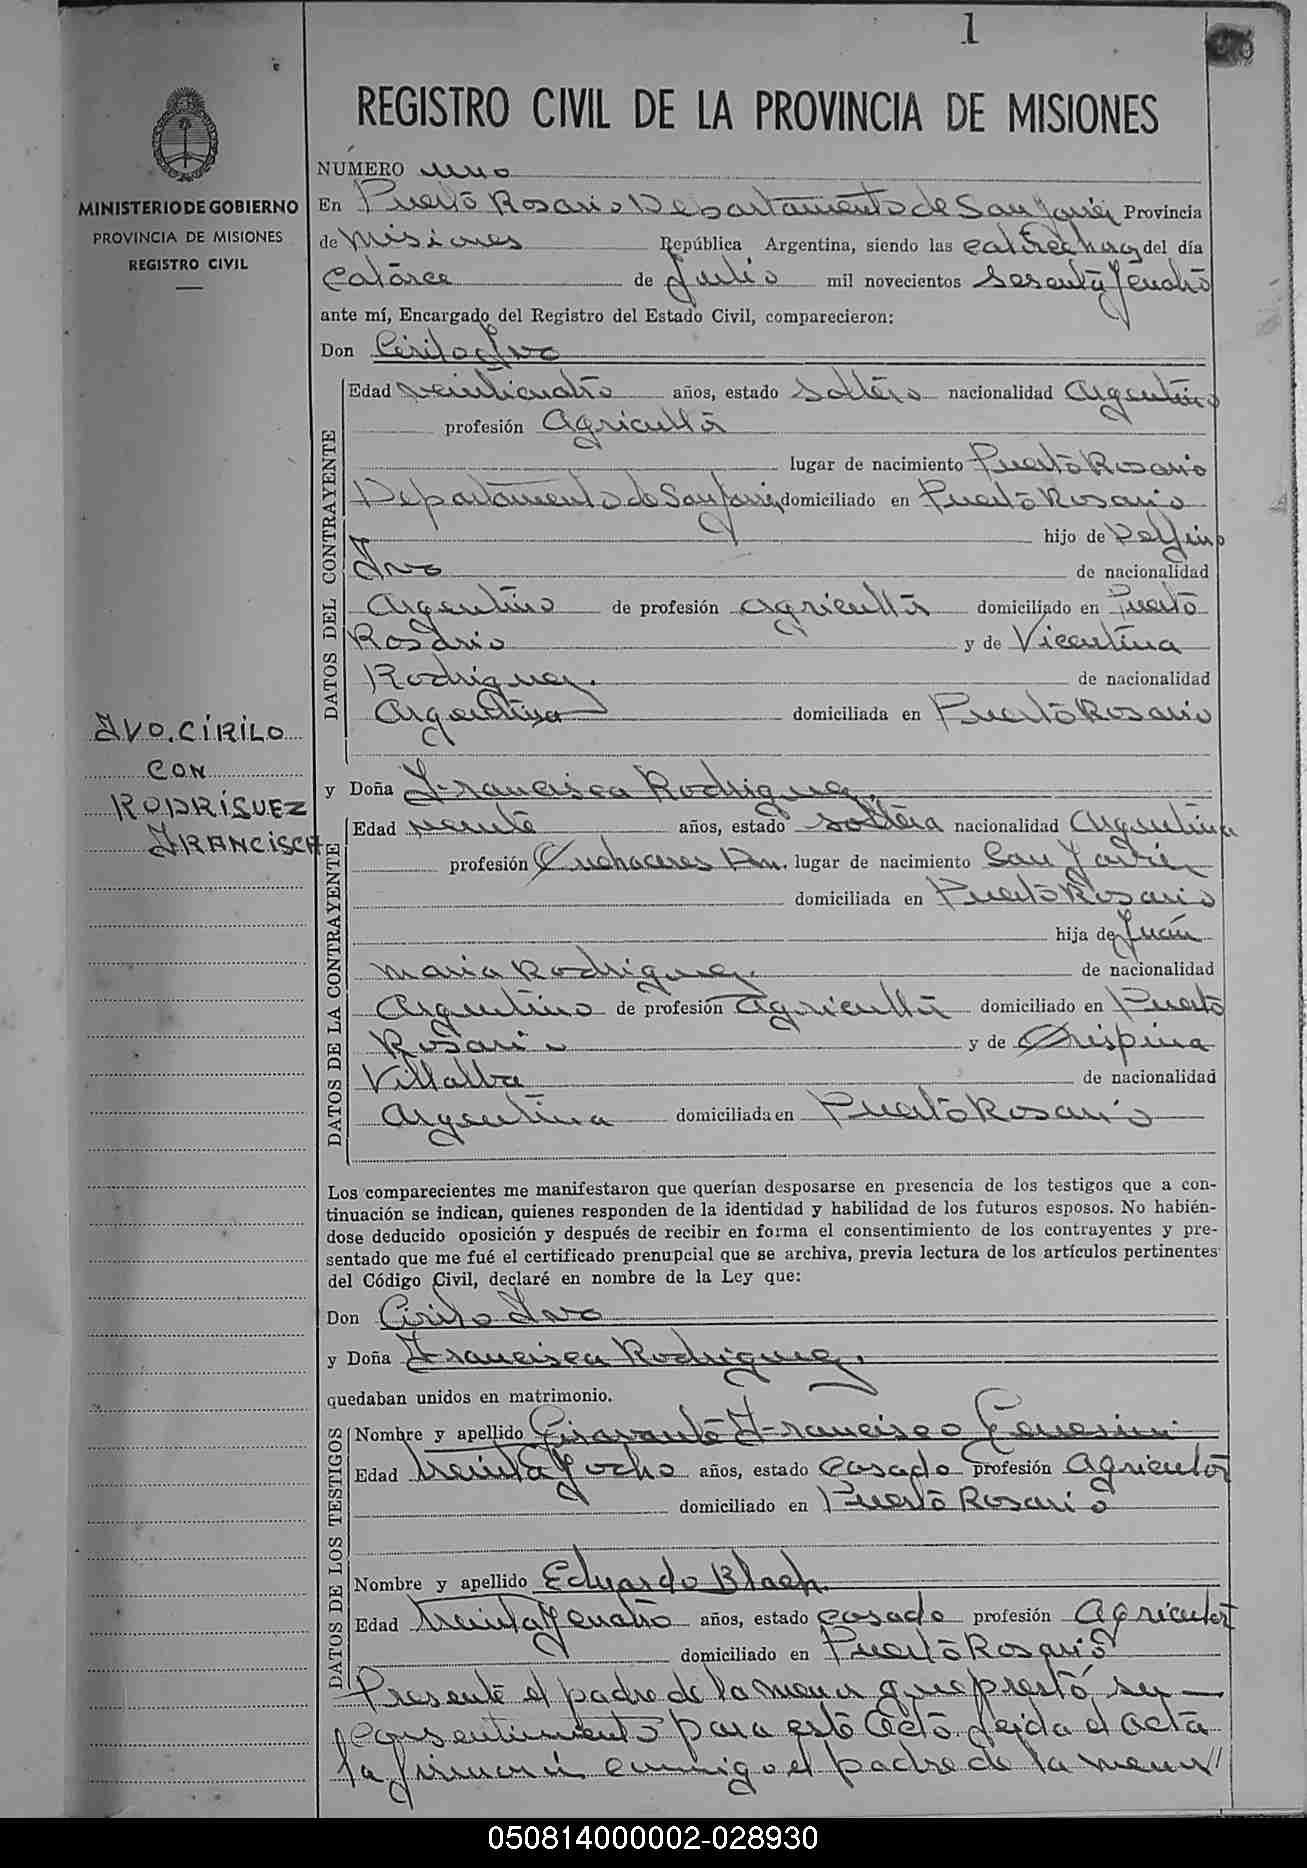 1
REGISTRO CIVIL DE LA PROVINCIA DE MISIONES
MINISTERIO DE GOBIERNO
PROVINCIA DE MISIONES
REGISTRO CIVIL
IVO. CÍRILO
CON
RODRÍGUEZ
FRANCISCA
NÚMERO uno
En Puerto Rosario Departamento de San Javier Provincia
de Misiones República Argentina, siendo las catorce horas del día
Catorce de Julio mil novecientos Sesenta y cuatro
ante mí, Encargado del Registro del Estado Civil, comparecieron:
Don Cirilo Ivo
DATOS DEL CONTRAYENTE
Edad veinticuatro años, estado soltero nacionalidad Argentino
profesión Agricultor
lugar de nacimiento Puerto Rosario
Departamento de San Javier domiciliado en Puerto Rosario
hijo de Delfino
Ivo de nacionalidad
Argentino de profesión agricultor domiciliado en Puerto
Rosario y de Vicentina
Rodriguez. de nacionalidad
Argentina domiciliada en Puerto Rosario
y Doña Francisca Rodriguez.
DATOS DE LA CONTRAYENTE
Edad veinte años, estado soltera nacionalidad Argentina
profesión Quehaceres Dm. lugar de nacimiento San Javier
domiciliada en Puerto Rosario
hija de Juán
Maria Rodriguez. de nacionalidad
Argentino de profesión agricultor domiciliado en Puerto
Rosario y de Crispina
Villalba de nacionalidad
Argentina domiciliada en Puerto Rosario
Los comparecientes me manifestaron que querían desposarse en presencia de los testigos que a con-
tinuación se indican, quienes responden de la identidad y habilidad de los futuros esposos. No habién-
dose deducido oposición y después de recibir en forma el consentimiento de los contrayentes y pre-
sentado que me fué el certificado prenupcial que se archiva, previa lectura de los artículos pertinentes
del Código Civil, declaré en nombre de la Ley que:
Don Cirilo Ivo
y Doña Francisca Rodriguez.
quedaban unidos en matrimonio.
DATOS DE LOS TESTIGOS
Nombre y apellido Francisco
Edad treinta y ocho años, estado casado profesión Agricultor
domiciliado en Puerto Rosario
Nombre y apellido Eduardo Blach.
Edad treinta y cuatro años, estado casado profesión Agricultor
domiciliado en Puerto Rosario
Presente el padre de la menor que prestó su
consentimiento para este acto. leida el acta
la firmarón conmigo el padre de la menor //
050814000002-028930